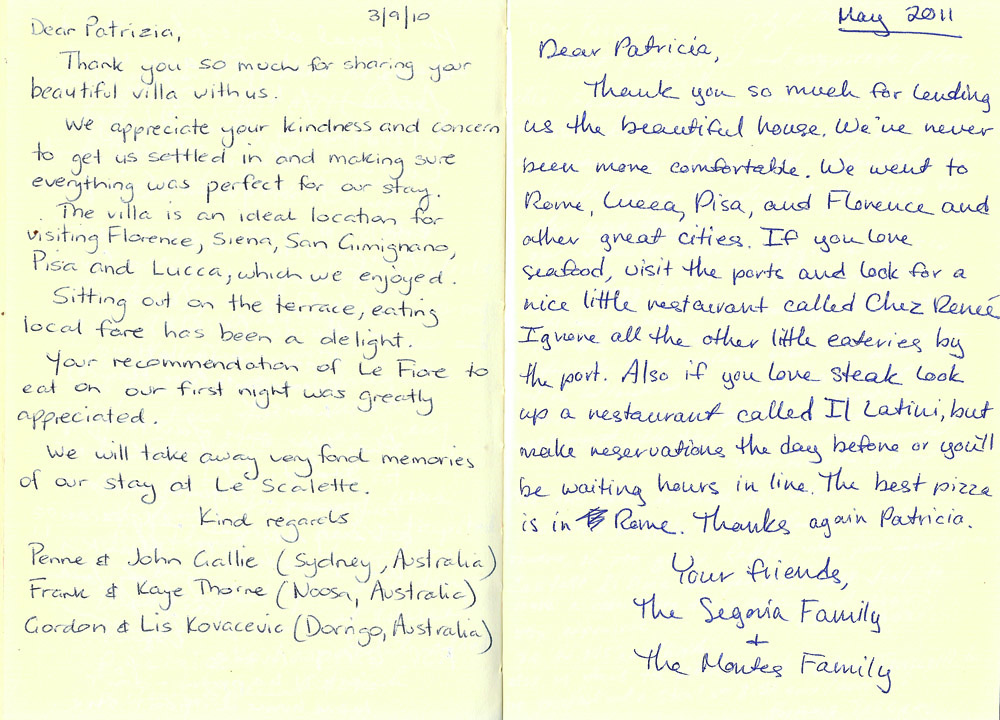 3/9/10
Dear Patrizia,
Thank you so much for sharing your
beautiful villa with us.
We appreciate your kindness and concern
to get us settled in and making sure
everything was perfect for our stay.
The villa is an ideal location for
visiting Florence, Siena, San Gimignano,
Pisa and Lucca, which we enjoyed.
Sitting out on the terrace, eating
local fare has been a delight.
Your recommendation of Le Fiore to
eat on our first night was greatly
appreciated.
We will take away very fond memories
of our stay at Le Scalette.
Kind regards
Penne & John Gallie (Sydney, Australia)
Frank & Kaye Thorne (Noosa, Australia)
Gordon & Lis Kovacevic (Dorrigo, Australia)
May 2011
Dear Patricia,
Thank you so much for lending
us the beautiful house. We've never
been more comfortable. We went to
Rome, Lucca, Pisa, and Florence and
other great cities. If you love
seafood, visit the ports and look for a
nice little restaurant called Chez Reneé
Ignore all the other little eateries by
the port. Also if you love steak look
up a restaurant called Il Latini, but
make reservations the day before or you'll
be waiting hours in line. The best pizza
is in Rome. Thanks again Patricia.
Your friends,
The Segovia Family
+
The Montes Family